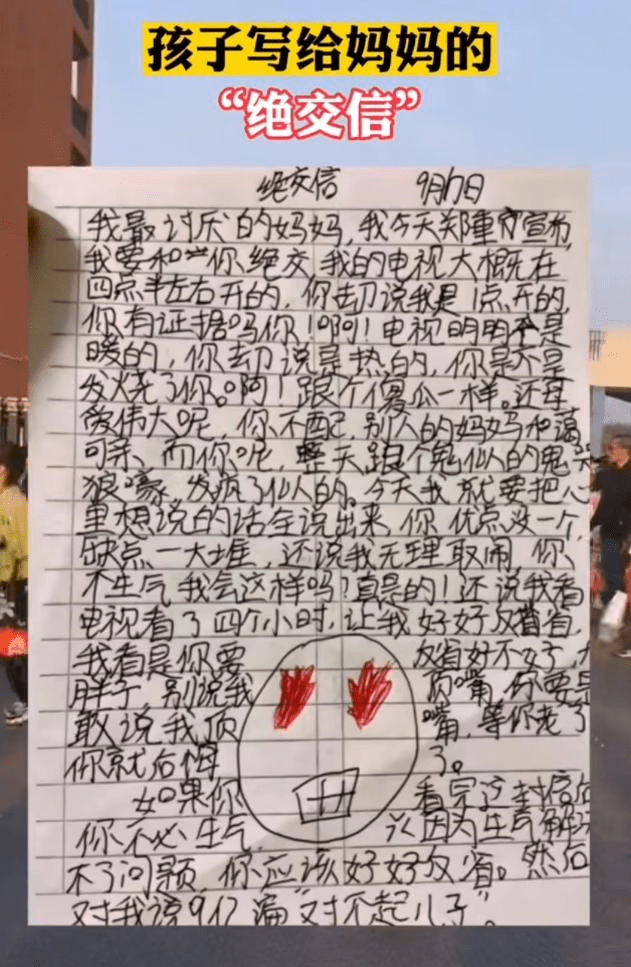 孩子写给妈妈的
“绝交信”
绝交信 9月17日
我最讨厌的妈妈,我今天郑重宣布,
我要和你绝交,我的电视大概在
四点半左右开的,你却说我是1点开的,
你有证据吗你!啊!电视明明是
暖的,你却说是热的,你是不是
发烧了你。啊!跟个傻瓜一样。还母
爱伟大呢,你不配,别人的妈妈和蔼
可亲,而你呢,整天跟个鬼似的鬼哭
狼嚎,发疯了似的。今天我就要把心
里想说的话全说出来,你优点没一个,
缺点一大堆,还说我无理取闹,你
不生气我会这样吗?真是的!还说我看
电视看了四个小时,让我好好反省,
我看是你要反省好不好,大
胖子,别说我顶嘴,你要是
敢说我顶嘴,等你老了
你就后悔了。
如果你看完这封信后
你不必生气,因为生气解决
不了问题,你应该好好反省。然后
对我说9亿遍“对不起儿子”。